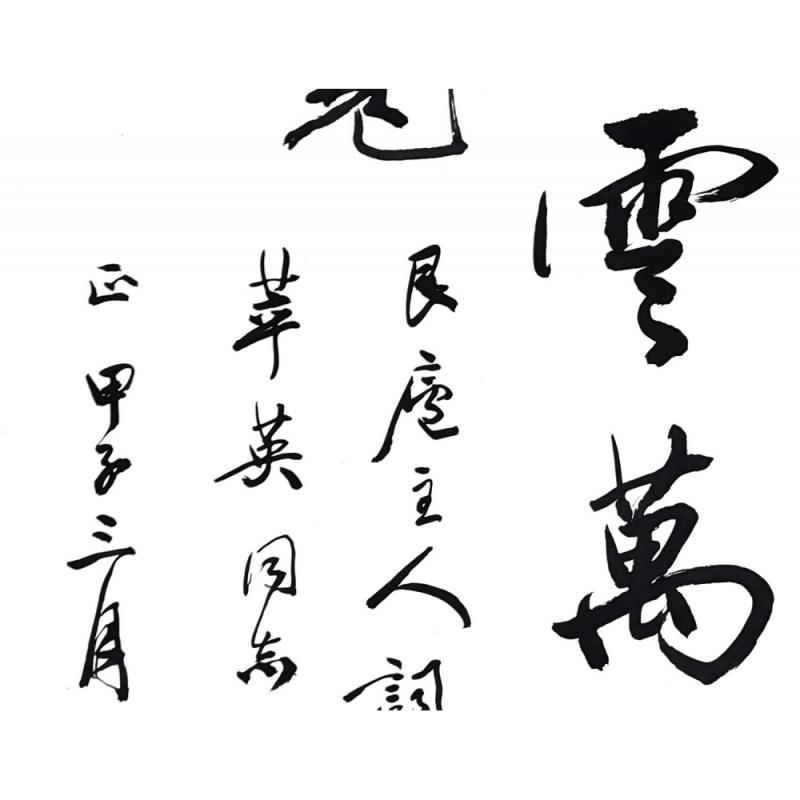 雲萬
艮廬主人詞
苹英同志
正 甲子三月